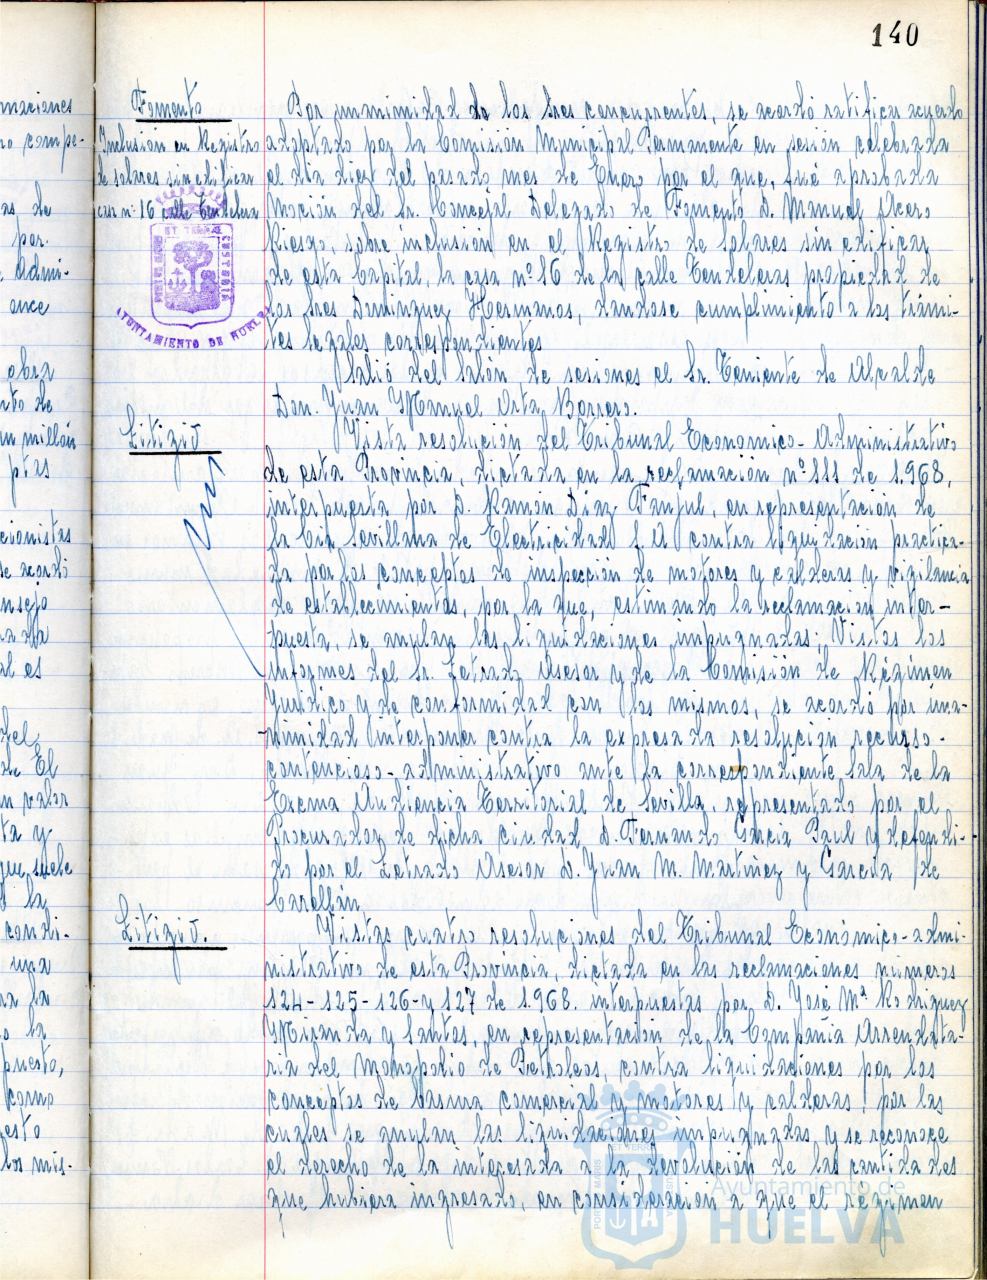 140
maciones
ro compe-
as de
por
Admi-
once
obra
nto de
un millón
ptas
cionistas
se acordó
nsejo
al es
del
de El
n valor
ta y
que suele
la
condi-
una
ra la
o la
puesto,
como
esto
los mis-
Fomento
Inclusión en Registro
de solares sin edificar
casa nº 16 calle Tendaleras
AYUNTAMIENTO DE HUELVA
Por unanimidad de los Sres concurrentes, se acordó ratificar acuerdo
adoptado por la Comisión Municipal Permanente en sesión celebrada
el día diez del pasado mes de Enero por el que, fué aprobada
Moción del Sr. Concejal Delegado de Fomento D. Manuel
Riesgo, sobre inclusión en el Registro de Solares sin edificar
de esta Capital, la casa nº 16 de la calle Tendaleras propiedad de
los Sres Dominguez Hermanos, dandose cumplimiento a los trámi-
tes legales correspondientes
Salió del Salón de sesiones el Sr. Teniente de Alcalde
Don. Juan Manuel Orta Borrero.
Litigio
Vista resolución del Tribunal Economico-Administrativo
de esta Provincia, dictada en la reclamación nº 111 de 1.968,
interpuesta por D. Ramón Díaz Fanjul, en representación de
la Cía Sevillana de Electricidad S.A contra liquidación practica-
da por los conceptos de inspección de motores y calderas y vigilancia
de establecimientos, por la que, estimando la reclamación inter-
puesta, se anulan las liquidaciones impugnadas; Vistos los
informes del Sr. Letrado Asesor y de la Comisión de Régimen
Jurídico y de conformidad con los mismos, se acordó por una-
nimidad interponer contra la expresada resolución recurso-
contencioso-administrativo ante la correspondiente Sala de la
Excma Audiencia Territorial de Sevilla, representado por el
Procurador de dicha ciudad D. Fernando García Paul y defendi-
do por el Letrado Asesor D. Juan M. Martínez y García de
Carellán.
Litigio.
Vistas cuatro resoluciones del Tribunal Económico-admi-
nistrativo de esta Provincia, dictada en las reclamaciones números
124-125-126-y 127 de 1.968 interpuestas por D. José Mª Rodriguez
Miranda y Santos, en representación de la Compañia Arrendata-
ria del Monopolio de Petroleos, contra liquidaciones por los
conceptos de basura comercial y motores y calderas, por las
cuales se anulan las liquidaciones impugnadas y se reconoce
el derecho de la interesada a la devolución de las cantidades
que hubiera ingresado, en consideración a que el régimen
Ayuntamiento de
HUELVA